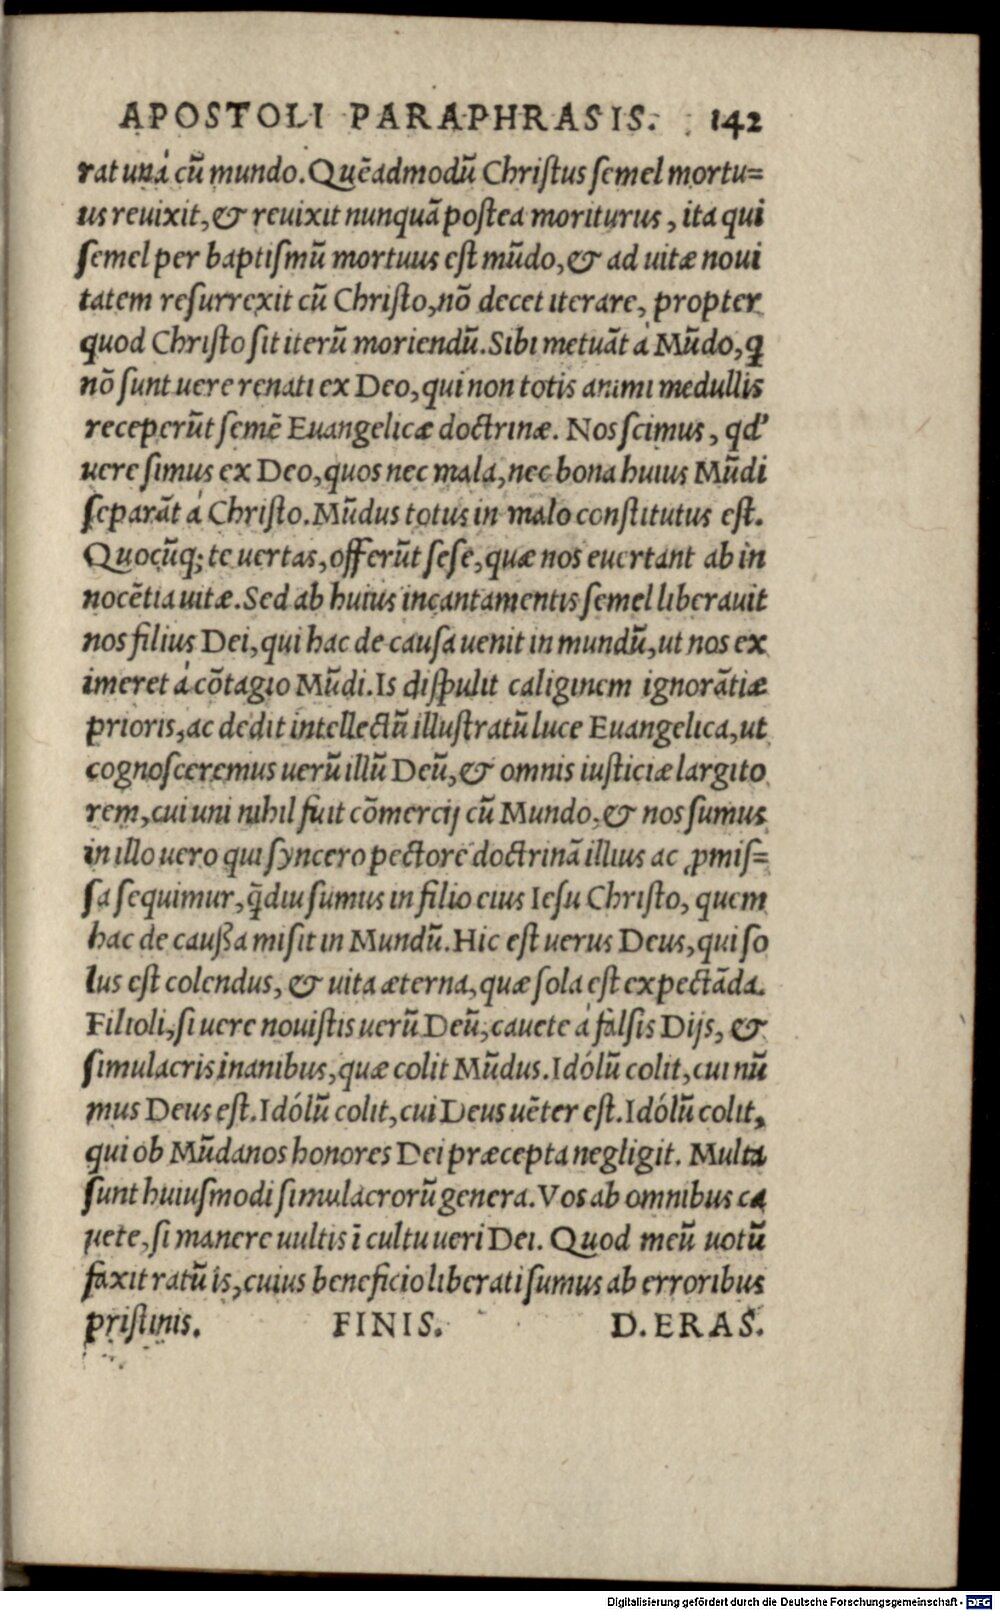 APOSTOLI PARAPHRASIS. 142
rat unà cũ mundo. Quẽadmodũ Christus semel mortu=
us reuixit, & reuixit nunquã postea moriturus, ita qui
semel per baptismũ mortuus est mũdo, & ad uitæ noui
tatem resurrexit cũ Christo, nõ decet iterare, propter
quod Christo sit iterũ moriendũ. Sibi metuãt à Mũdo, ꝗ
nõ sunt uere renati ex Deo, qui non totis animi medullis
receperũt semẽ Euangelicæ doctrinæ. Nos scimus, qd'
uere simus ex Deo, quos nec mala, nec bona huius Mũdi
separãt à Christo. Mũdus totus in malo constitutus est.
Quocũq; te uertas, offerũt sese, quæ nos euertant ab in
nocẽtia uitæ. Sed ab huius incantamentis semel liberauit
nos filius Dei, qui hac de causa uenit in mundũ, ut nos ex
imeret à cõtagio Mũdi. Is dispulit caliginem ignorãtiæ
prioris, ac dedit intellectũ illustratũ luce Euangelica, ut
cognosceremus uerũ illũ Deũ, & omnis iusticiæ largito
rem, cui uni nihil fuit cõmercij cũ Mundo, & nos sumus
in illo uero qui syncero pectore doctrinã illius ac ꝓmis=
sa sequimur, q̃diu sumus in filio eius Iesu Christo, quem
hac de caußa misit in Mundũ. Hic est uerus Deus, qui so
lus est colendus, & uita æterna, quæ sola est expectãda.
Filioli, si uere nouistis uerũ Deũ, cauete à falsis Dijs, &
simulacris inanibus, quæ colit Mũdus. Idólũ colit, cui nũ
mus Deus est. Idólũ colit, cui Deus uẽter est. Idólũ colit,
qui ob Mũdanos honores Dei præcepta negligit. Multa
sunt huiusmodi simulacrorũ genera. Vos ab omnibus ca
uete, si manere uultis ĩ cultu ueri Dei. Quod meũ uotũ
faxit ratũ is, cuius beneficio liberati sumus ab erroribus
pristinis. FINIS. D. ERAS.
Digitalisierung gefördert durch die Deutsche Forschungsgemeinschaft - DFG